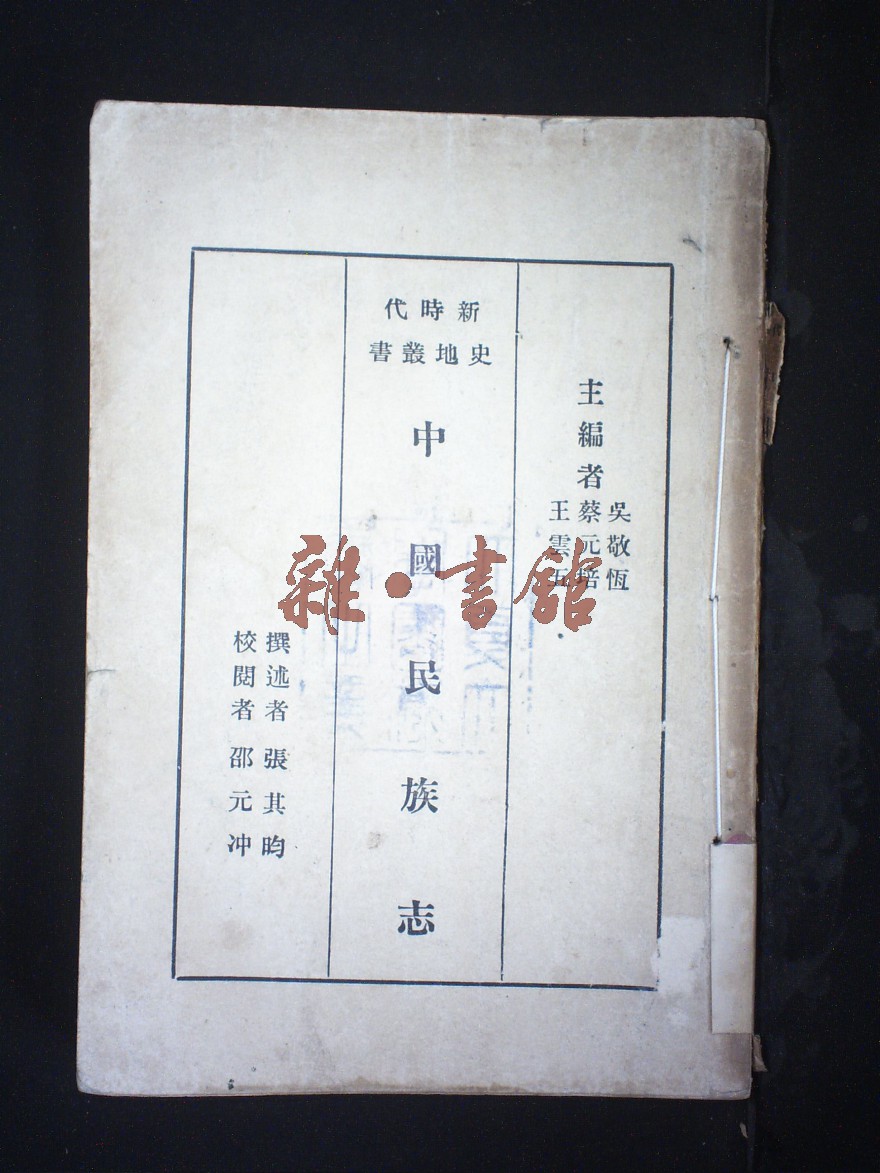 主編者
吳敬恆
蔡元培
王雲五
新時代
史地叢書
中國民族志
撰述者 張其昀
校閱者 邵元冲
雜·書館